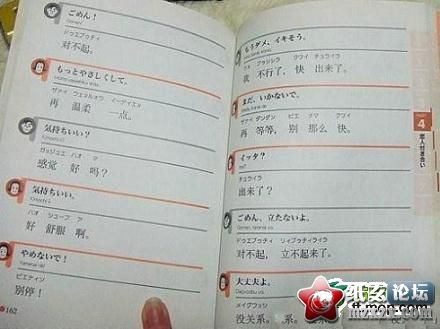 ごめん！
ドゥエブゥチィ
对不起。
もっとやさしくして。
ザァイ ウェンルォウ イーディエェ
再 温柔 一点。
気持ちいい？
Kimochii?
ガァジュエ ハオ マ
感觉 好 吗？
気持ちいい。
Kimochii.
ハオ シューフ ア
好 舒服 啊。
やめないで！
Yamenai de!
ビエティン
别停！
162
もうダメ、イキそう。
我 不行了，快 出来了。
まだ、いかないで。
ザァイ デンデン ビエ ナマ クワイ
再 等等，别 那么 快。
イッタ？
チュライラ
出来了？
ごめん、立たないよ。
ドゥエブゥチィ リィブゥチィライラ
对不起， 立不起来了。
大丈夫よ。
Daijoobu yo.
メイグワンシ
没关系。
PART
4
恋人付き合い
纸玄论坛